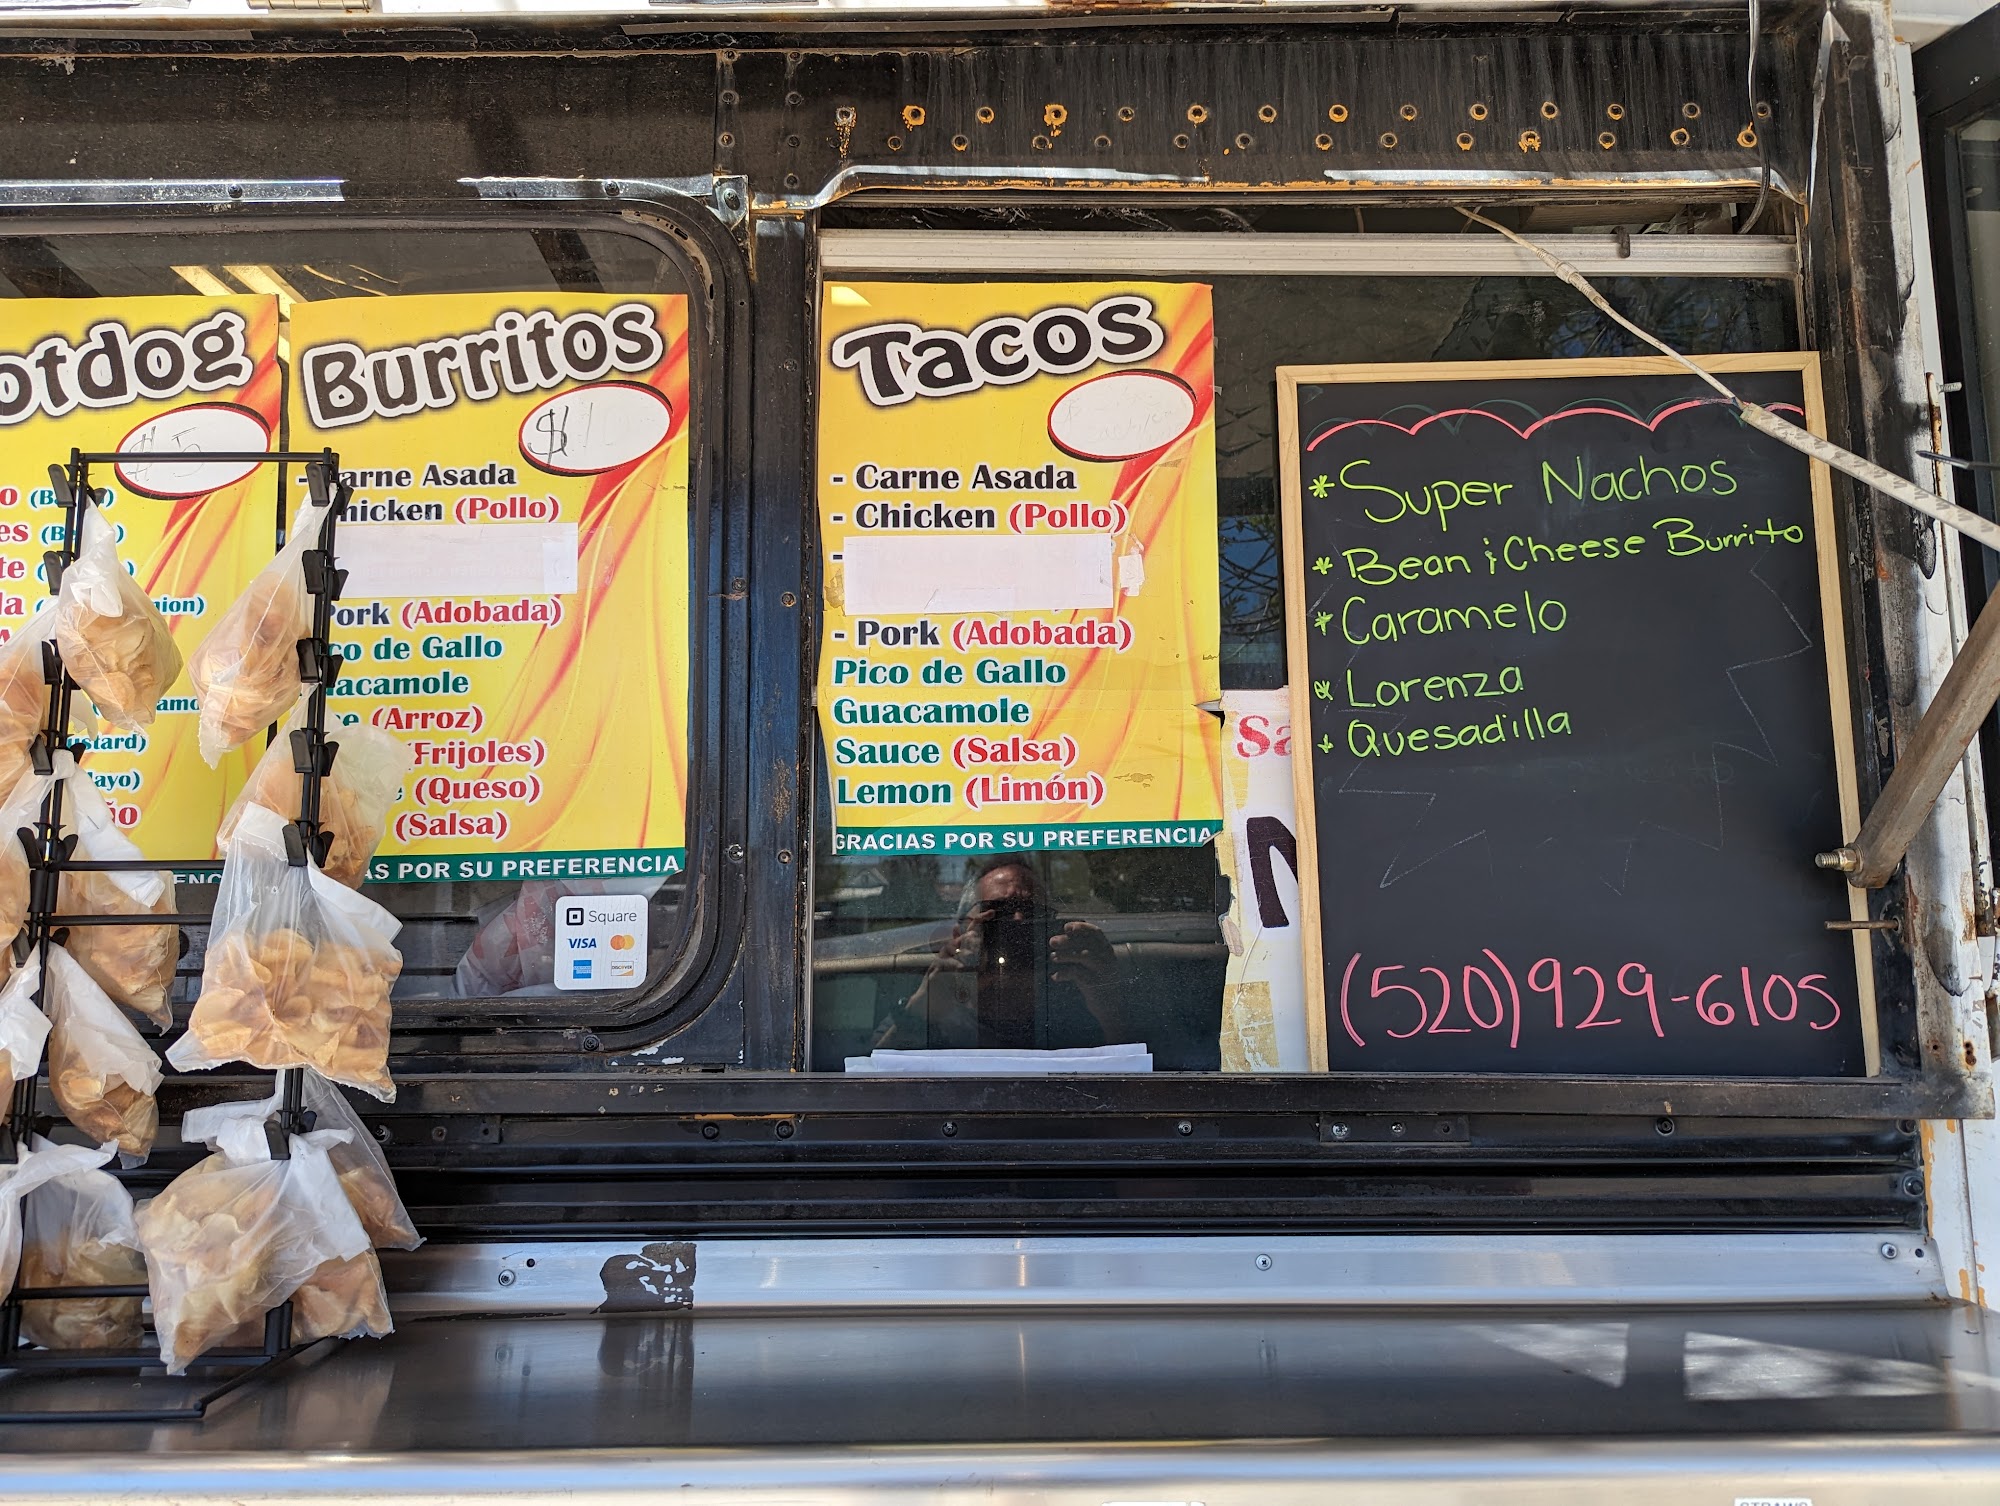 otdog
$5
ion)
ustard)
ayo)
Burritos
$10
- Carne Asada
Chicken (Pollo)
Pork (Adobada)
co de Gallo
acamole
(Arroz)
(Frijoles)
(Queso)
(Salsa)
AS POR SU PREFERENCIA
Square
VISA
DISCOVER
Tacos
- Carne Asada
- Chicken (Pollo)
-
- Pork (Adobada)
Pico de Gallo
Guacamole
Sauce (Salsa)
Lemon (Limón)
GRACIAS POR SU PREFERENCIA
* Super Nachos
* Bean & Cheese Burrito
* Caramelo
* Lorenza
* Quesadilla
(520)929-6105